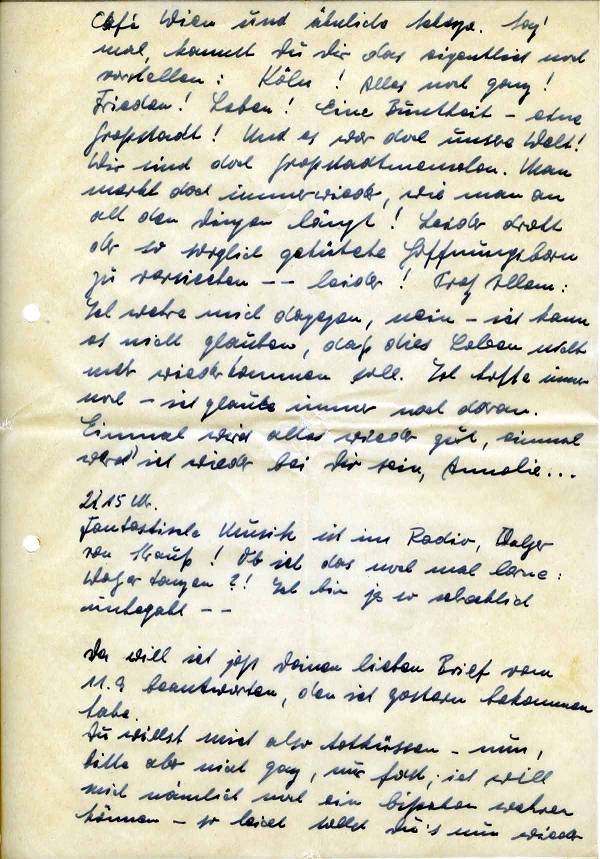 Café Wien und ähnliche Sag'
mal, kannst Du Dir das eigentlich noch
vorstellen: Köln! Alles noch ganz!
Frieden! Leben! Eine Buntheit – eine
Großstadt! Und es war doch unsere Welt!
Wir sind doch Großstadtmenschen. Man
merkt doch immerwieder, wie man an
all den Dingen hängt! Leider droht
der so sorglich gehütete Hoffnungsborn
zu versiechen -- leider! Trotz Allem:
Ich wehre mich dagegen, nein – ich kann
es nicht glauben, daß dies Leben nicht
mehr wiederkommen soll. Ich hoffe immer
noch – ich glaube immer noch daran.
Einmal wird alles wieder gut, einmal
werd' ich wieder bei Dir sein, Annelie...
21 15 Uhr.
Fantastische Musik ist im Radio, Walzer
von Strauß! Ob ich das noch mal lerne:
Walzer tanzen?! Ich bin ja so schrecklich
unbegabt --
Da will ich jetzt Deinen lieben Brief vom
11.9 beantworten, den ich gestern bekommen
habe.
Du willst mich also totküssen – nun,
bitte aber nicht ganz, nur fast, ich will
mich nämlich noch ein bißchen wehren
können – so leicht sollst Du's nun wieder